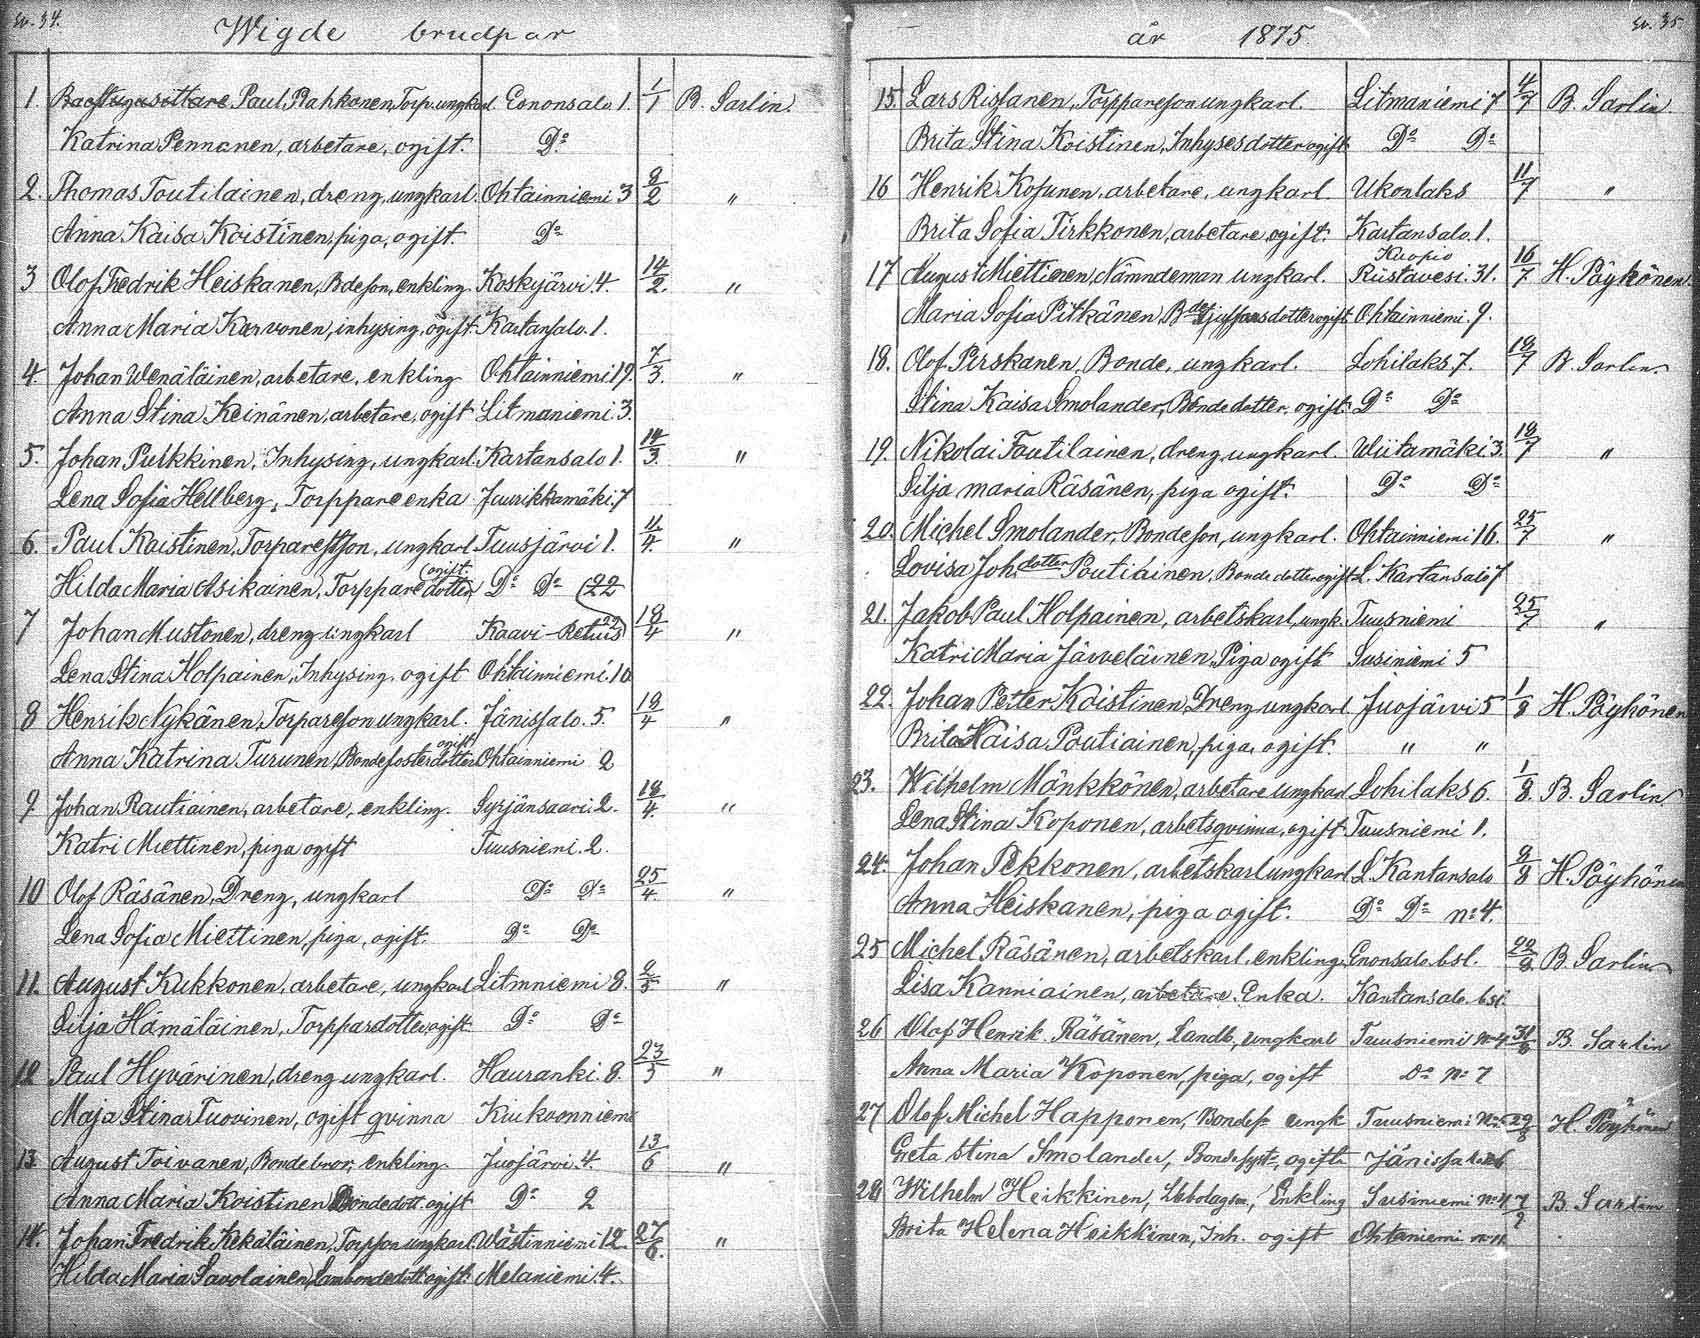 Sv. 34.
Wigde brudpar
1. Backstugusittare Paul Pahkonen, Torp. ungkarl Enonsalo 1. 1/1 B. Sarlin.
Katrina Pennanen, arbetare, ogift. Do
2. Thomas Toutilainen, dreng, ungkarl. Ohtainniemi 3 8/2 "
Anna Kaisa Koistinen, piga, ogift. Do
3 Olof Fredrik Heiskanen, Bdeson, enkling Koskyjärvi 4. 14/2. "
Anna Maria Karvonen, inhysing, ogift Kartansalo. 1.
4. Johan Wenäläinen, arbetare, enkling Ohtainniemi 19. 7/3. "
Anna Stina Keinänen, arbetare, ogift Litmaniemi. 3.
5. Johan Pulkkinen, Inhysing, ungkarl. Kartansalo 1. 14/3. "
Lena Sofia Hellberg, Torppare enka Juurikkamäki. 7
6. Paul Koistinen, Torpareson, ungkarl Tuusjärvi 1. 11/4. "
Hilda Maria Asikainen, Torppare dotter ogift. Do Do 22
7 Johan Mustonen, dreng ungkarl Kaavi Retuis 18/4 "
Lena Stina Holpainen, Inhysing, ogift Ohtainniemi. 10
8 Henrik Nykänen, Torpareson ungkarl. Jänissalo. 5. 18/4 "
Anna Katrina Turunen, Bondefosterdotter ogift Ohtainniemi 2
9 Johan Rautiainen, arbetare, enkling. Syrjänsaari. 2. 18/4. "
Katri Miettinen, piga ogift Tuusniemi. 2.
10 Olof Räsänen, Dreng, ungkarl Do Do 25/4. "
Lena Sofia Miettinen, piga, ogift. Do Do
11. August Kukkonen, arbetare, ungkarl Litmniemi 8. 2/5 "
Silja Hämäläinen, Torppardotter ogift Do Do
12 Paul Hyvärinen, dreng ungkarl. Hauranki. 8. 23/5 "
Maja Stina Tuovinen, ogift qvinna Kiukoonniemi
13. August Toivanen, Bondebror, enkling. Juojärvi. 4. 13/6 "
Anna Maria Koistinen Bondedott. ogift Do 2
14. Johan Fredrik Kekäläinen, Torpson ungkarl. Wästinniemi 12. 27/6. "
Hilda Maria Savolainen, ogift. Melaniemi. 4.
Sv. 35
år 1875
15. Lars Rissanen, Torppareson ungkarl. Litmaniemi 7 4/7 B. Sarlin.
Brita Stina Koistinen, Inhysesdotter ogift Do Do
16 Henrik Kosunen, arbetare, ungkarl. Ukonlaks 11/7 "
Brita Sofia Tirkkonen, arbetare, ogift. Kartansalo. 1.
17 August Miettinen, Nämndeman ungkarl. Kuopio Riistavesi. 31. 16/7 H. Pöyhönen.
Maria Sofia Pitkänen, dotter ogift Ohtainniemi. 9.
18. Olof Pirskanen, Bonde, ungkarl. Lohilaks 7. 18/7 B. Sarlin.
Stina Kaisa Smolander, Bondedotter, ogift. Do Do
19. Nikolai Toutilainen, dreng ungkarl. Wiitamäki 3. 18/7 "
Silja Maria Räsänen, piga ogift. Do Do
20. Michel Smolander, Bondeson, ungkarl. Ohtainniemi 16. 25/7 "
Lovisa Joh.dotter Poutiainen, Bonde dotter ogift L. Kartansalo 7
21. Jakob Paul Holpainen, arbetskarl, ungk. Tuusniemi 25/7 "
Katri Maria Järveläinen, Piga ogift Susiniemi 5
22. Johan Petter Koistinen, Dreng ungkarl Juojärvi 5 1/8 H. Pöyhönen
Brita Kaisa Poutiainen, piga, ogift. " "
23. Wilhelm Mänkkönen, arbetare ungkarl Lohilaks 6. 1/8. B. Sarlin
Lena Stina Koponen, arbetsqvinna, ogift Tuusniemi 1.
24. Johan Pekkonen, arbetskarl ungkarl L. Kartansalo 8/8 H. Pöyhönen
Anna Heiskanen, piga ogift. Do Do No 4.
25 Michel Räsänen, arbetskarl, enkling. Enonsalo bsl. 22/8 B. Sarlin
Lisa Kanniainen, arbetare Enka. Kartansalo. bsl.
26 Olof Henrik Räsänen, Landb., ungkarl Tuusniemi No 4 31/8 B. Sarlin
Anna Maria Koponen, piga, ogift Do No 7
27 Olof Michel Happonen, Bondes. ungk Tuusniemi 29/8 H. Pöyhönen
Greta Stina Smolander, Bondesyst., ogift Jänissalo
28 Wilhelm Heikkinen, Enkling Susiniemi No 4 7/9 B. Sarlin
Brita Helena Heikkinen, Inh. ogift Ohtaniemi